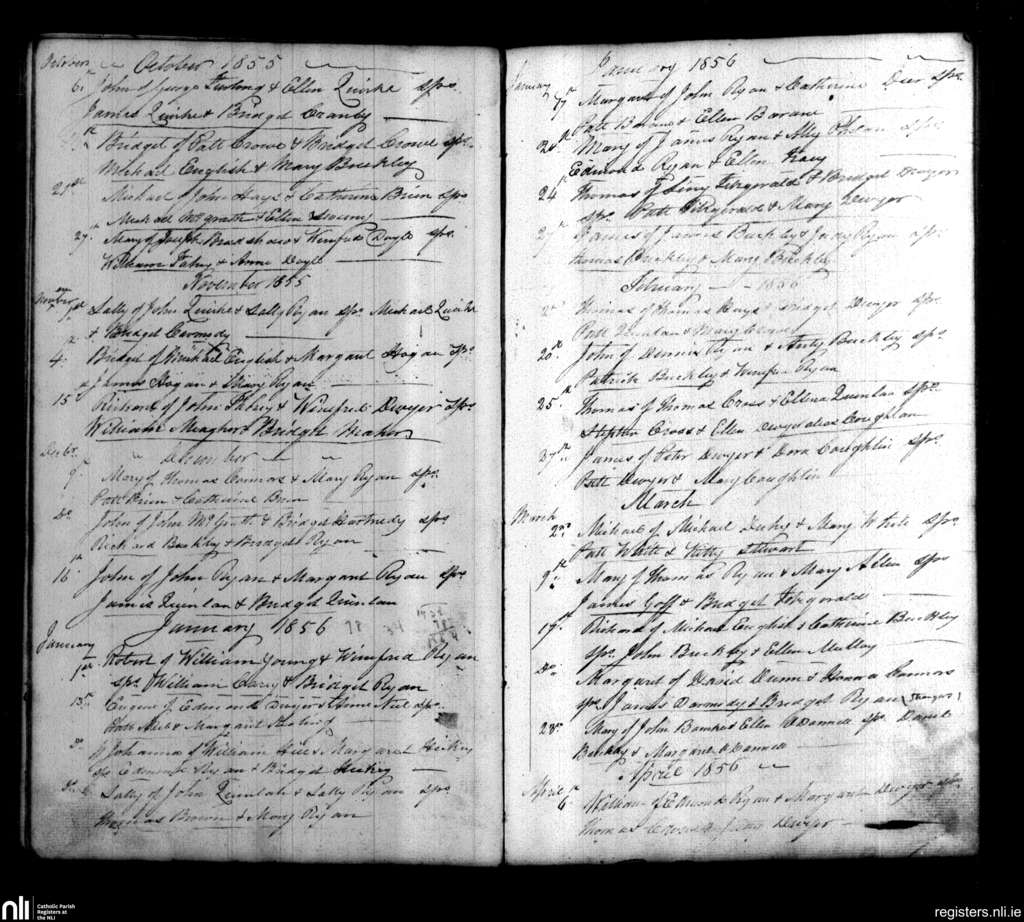 October October 1855
6 John of George Furlong & Ellen Quirke Sprs
James Quirke & Bridget Cranby
Bridget of Patt Crowe & Bridget Crowe Sprs
Michael English & Mary Buckley
21st Michael of John Hays & Catherine Brien Sprs
Michael McGrath & Ellen Sweeny
27 Mary of Joseph Bradshaw & Winefred Doyle Sprs
William Fahy & Anne Doyle
November 1855
November 1st Sally of John Quirke & Sally Ryan Sprs Michael Quirke
& Bridget Carmody
4 Bridget of Michael English & Margaret Hogan Sprs
James Hogan & Mary Ryan
15 Richard of John Fahey & Winefred Dwyer Sprs
William Meagher & Bridget Maher
December
9 Mary of Thomas Connors & Mary Ryan Sprs
Patt Brien & Catherine Brien
Do John of John & Bridget Sprs
Richard Buckley & Bridget Ryan
16 John of John Ryan & Margaret Ryan Sprs
James Quinlan & Bridget Quinlan
January 1856 78 39
January 1st Robert of William Young & Winefred Ryan
Sprs William Clary & Bridget Ryan
13 Eugene of Edmond Dwyer & Anne Neil Sprs
Patt Neil & Margaret
Do Johanna of William & Margaret Hickey
Sprs Edmond Ryan & Bridget Hickey
Sally of John Quinlan & Sally Ryan Sprs
Thomas Brown & Mary Ryan
January 1856
January 7th Margaret of John Ryan & Catherine Sprs
Patt & Ellen
20 Mary of James Ryan & Ally Phelan Sprs
Edmond Ryan & Ellen
24 Thomas of Fitzgerald & Bridget Dwyer
Sprs Patt Fitzgerald & Mary Dwyer
27 James of James Buckley & Judy Ryan Sprs
Thomas Buckley & Mary Buckley
February 1856
2 Thomas of Thomas Hays & Bridget Dwyer Sprs
Patt Quinlan & Mary
20 John of Dennis Ryan & Buckley Sprs
Patrick Buckley & Winefred Ryan
25 Thomas of Thomas Cross & Ellena Quinlan Sprs
Stephen Cross & Ellen Dwyer alias Coughlan
James of Peter Dwyer & Dora Coughlin Sprs
Patt Dwyer & Mary Coughlin
March
March 2nd Michael of Michael & Mary White Sprs
Patt White & Kitty Stewart
9 Mary of Thomas Ryan & Mary Allen Sprs
James Goff & Bridget Fitzgerald
17 Richard of Michael English & Catherine Buckley
Sprs John Buckley & Ellen Mullay
Do Margaret of David Dunn & Honora Connors
Sprs James Darmody & Bridget Ryan (Strangers)
28 Mary of John & Ellen O'Donnell Sprs Daniel
Buckley & Margaret O'Donnell
Aprile 1856
Aprile 6 William of Edmond Ryan & Margaret Dwyer Sprs
Thomas Dwyer
nli Catholic Parish
Registers at
the NLI
registers.nli.ie